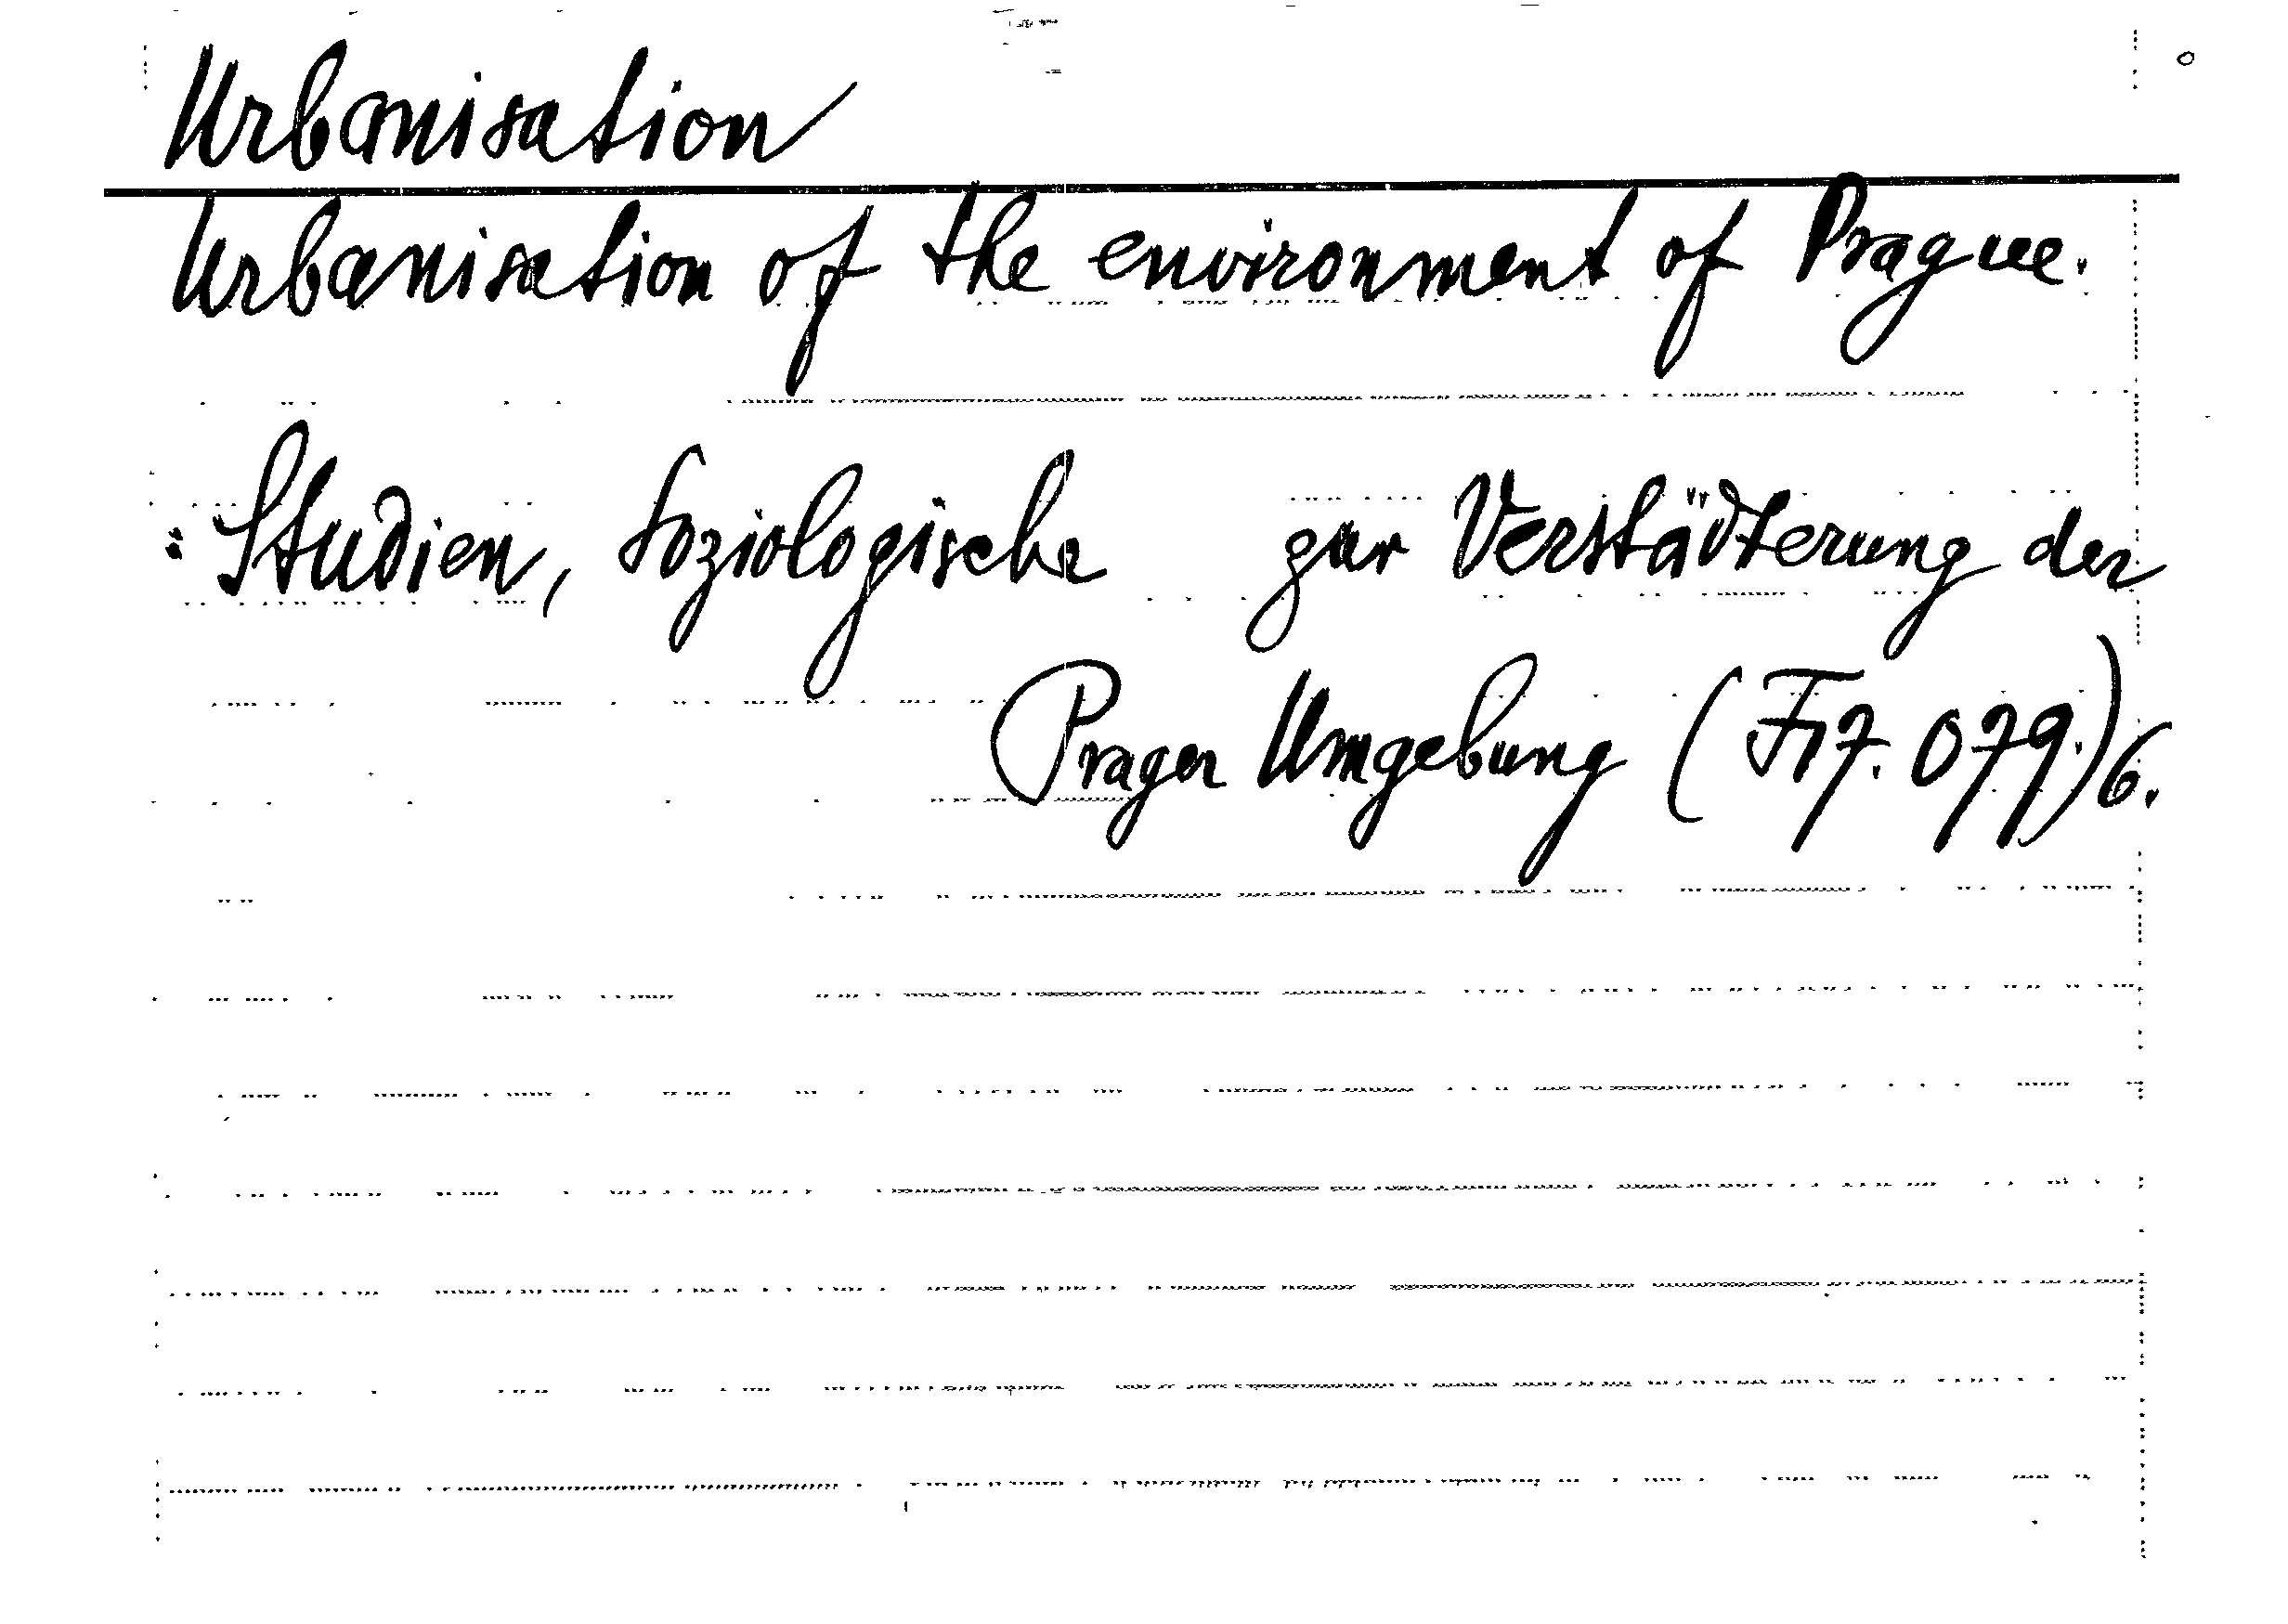 Urbanisation
Urbanisation of the environment of Prague.
: Studien, Soziologische zur Verstädterung der
Prager Umgebung (F17. 079.) 6.